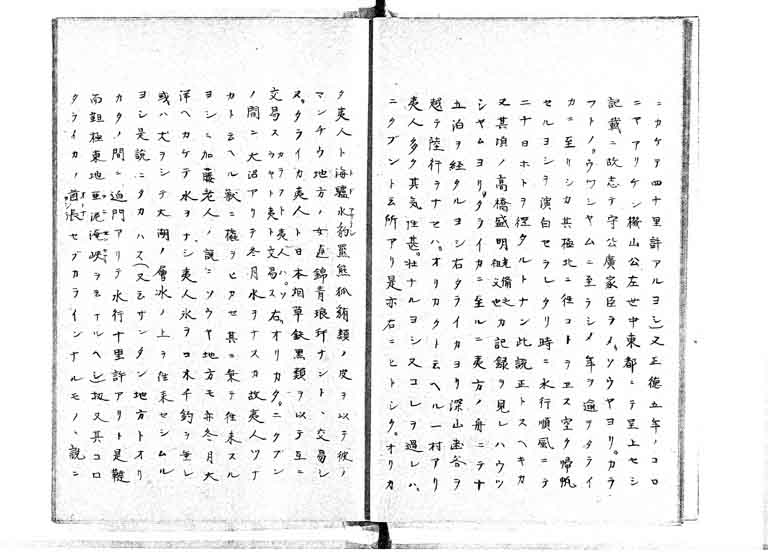 ニカケテ四十里許アルヨシ)又正徳五年ノコロ
ニヤアリケン樺山公左世中東都ニテ呈上セシ
記載ニ故志テ守公廣家臣ヲメソウヤヨリカラ
フトノウツシヤムニ至ラシノ年ヲ逾タライ
カニ至リシカ其極北ニ往コトヲエス空ク帰帆
セルヨシヲ演白セラレタリ時ニ水行順風ニテ
二十日ホトヲ径タルトナン此説正トスヘキカ
又其頃ノ高橋盛明カ記録ヲ見レハウツ
シヤムヨリタライカニ至ルニ夷方ノ舟ニテ十
五泊ヲ経タルヨシ右タライカヨリ深山幽谷ヲ
越テ陸行ヲナセハオリカタクト云ヘル一村アリ
夷人多ク其気性甚壮ナルヨシスコレヲ過レハ
ニクブント云所アリ是亦右ニヒトシクオリカ
ク夷人ト海驢水豹羆熊狐貂類ノ皮ヲ以テ彼ノ
マンチウ地方ノ女直錦青琅玕ナントヽ交易シ
スタライカ夷人ト日本烟草鉄黒類ヲ以テ互ニ
交易ス
ノ間ニ大沼アリテ冬月氷ヲナスカ故夷人ツナ
カト云ヘル獣ニ橇ヲヒカセ其ニ乗テ往来スル
ヨシ加藤老人ノ説ニソウヤ地方モ亦冬月大
洋ヘカケテ氷ヲナシ夷人氷ヲコ木千釣ヲ垂レ
或ハ犬ヲシテ大湖ノ會氷ノ上ヲ往来セシムル
ヨシ是説ニタカハス(又云サンタン地方トオリ
カタノ間ニ迫門アリテ水行十里許アリト是韃
而靼極東地亜港海峡ヲ云ナルヘシ)扨又其コロ
タライカノ酋張セブカラインナルモノヽ説ニ